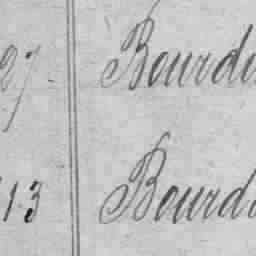 27 Bourdi
13 Bourd